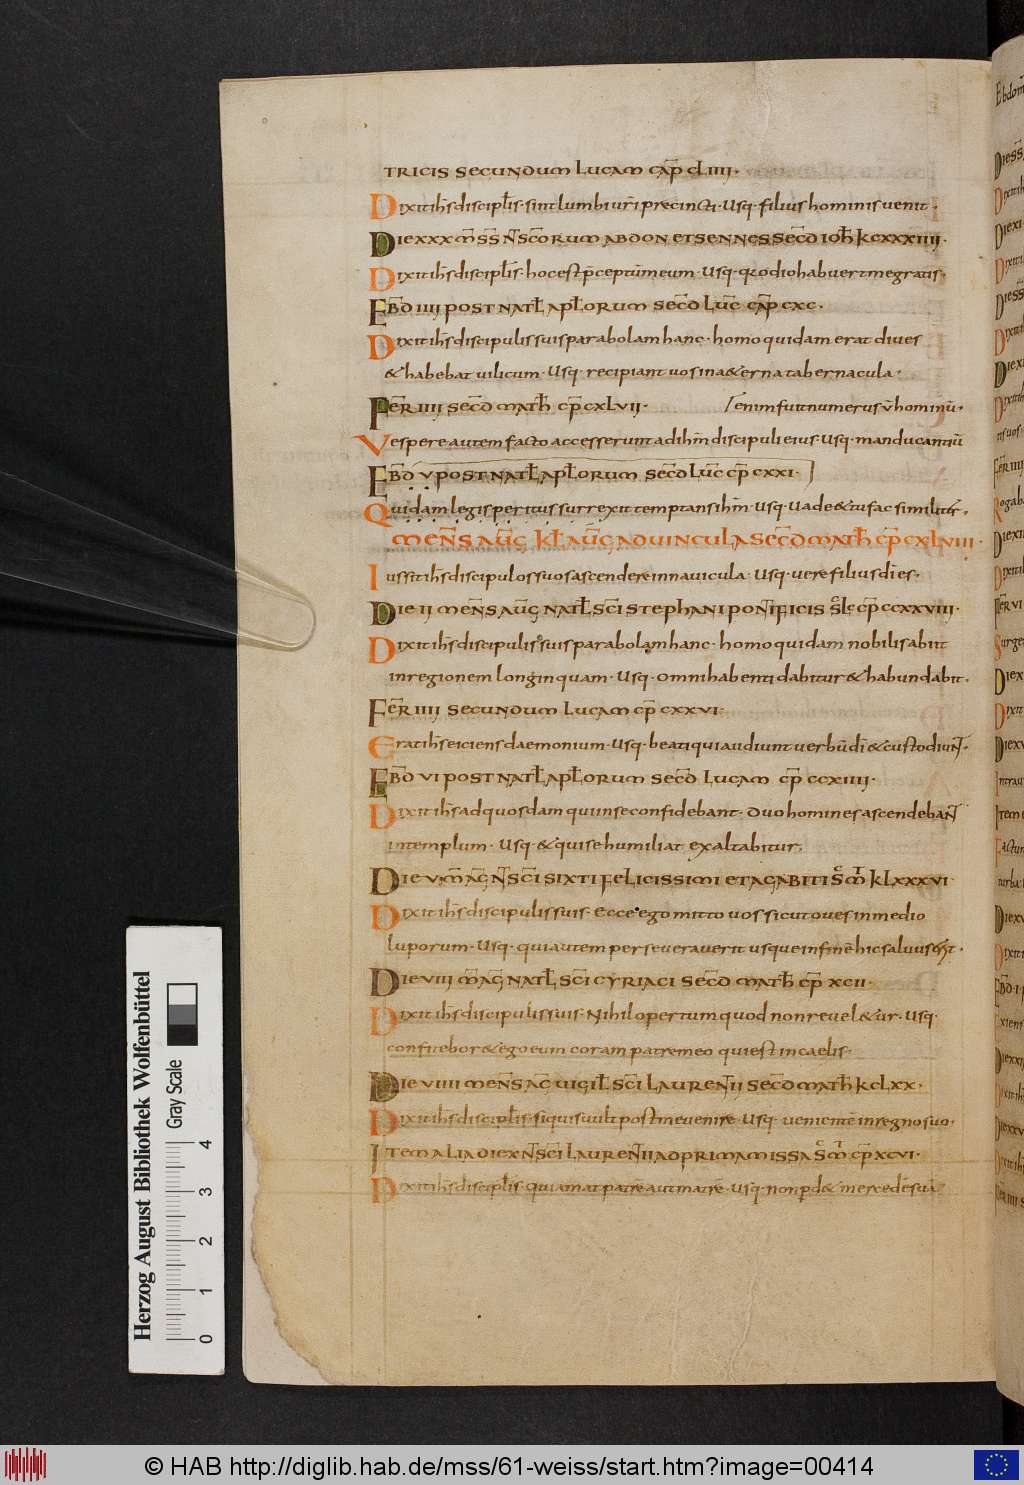 TRICIS SECUNDUM LUCAM CAP̄ CLIIII·
Dixit ih̄s discipl̄is· sint lumbi ur̄i precincti· usq· filius hominis uenit·
DIE XXX M̄S S̄ N̄ SC̄ORUM ABDON ET SENNES SEC̄D IOH̄ K CXXXIIII·
Dixit ih̄s discipl̄is· hoc est p̄ceptum meum· usq· q̄odio habuert me gratis·
EB̄D IIII POST NATL̄ APL̄ORUM SEC̄D LUC̄ CAP̄ CXC·
Dixit ih̄s discipulis suis parabolam hanc· homo quidam erat diues
& habebat uilicum· usq· recipiant uos in a&erna tabernacula·
FER̄ IIII SEC̄D MATH̄ CP̄ CXLVII·
enim fuit numerus v̄ hominū·
Vespere autem facto accesserunt ad ih̄m discipuli eius· usq· manducantiū
EB̄D V POST NATL̄ APL̄ORUM SEC̄D LUC̄ CP̄ CXXI·
Quidam legis peritus surrexit temptans ih̄m· usq· uade & tu fac similitr̄·
MEN̄S AUḠ KL̄ AUḠ AD UINCULA SEC̄D MATH̄ CP̄ CXLVIII·
Iussit ih̄s discipulos suos ascendere in nauicula· usq· uere filius dī es·
DIE II MEN̄S AUḠ NATL̄ SC̄I STEPHANI PONTIFICIS S̄ LC̄ CP̄ CCXXVIII·
Dixit ih̄s discipulis suis parabolam hanc· homo quidam nobilis abiit
in regionem longinquam· usq· omni habenti dabitur & habundabit·
FER̄ IIII SECUNDUM LUCAM CP̄ CXXVI·
Erat ih̄s eiciens daemonium· usq· beati qui audiunt uerbū dī & custodiunt·
EB̄D VI POST NATL̄ APL̄ORUM SEC̄D LUCAM CP̄ CCXIIII·
Dixit ih̄s ad quosdam qui in se confidebant· duo homines ascendebant
in templum· usq· & qui se humiliat exaltabitur·
DIE V M̄ AḠ N̄ SC̄I SIXTI FELICISSIMI ET AGABITI S̄ M̄ K LXXXVI·
Dixit ih̄s discipulis suis· Ecce ego mitto uos sicut oues in medio
luporum· usq· qui autem perseuerauerit usque in finē hic saluus erit·
DIE VIII M̄ AḠ NATL̄ SC̄I CYRIACI SEC̄D MATH̄ CP̄ XCII·
Dixit ih̄s discipulis suis· Nihil opertum quod non reuel&ur· usq·
confitebor & ego eum coram patre meo qui est in caelis·
DIE VIIII MEN̄S AḠ UIGIL̄ SC̄I LAURENTII SEC̄D MATH̄ K CLXX·
Dixit ih̄s discipl̄is· si quis uult post me uenire· usq· uenientē in regno suo·
ITEM ALIA DIE X N̄ SC̄I LAURENTII AD PRIMA MISSA S̄ M̄ CP̄ XCVI·
Dixit ih̄s discipl̄is· qui amat patrē aut matrē· usq· non pd& mercedē suā
Herzog August Bibliothek Wolfenbüttel
Gray Scale
0 1 2 3 4
© HAB http://diglib.hab.de/mss/61-weiss/start.htm?image=00414